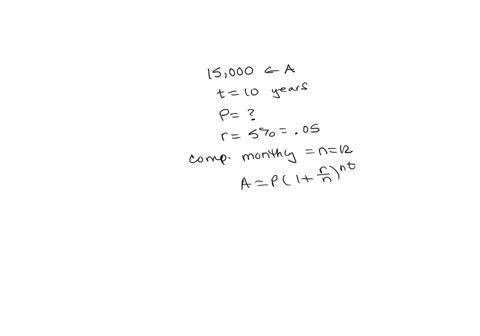 15,000 ← A
t = 10 years
P = ?
r = 5% = .05
comp. monthly = n = 12
A = P(1 + r/n)^nt